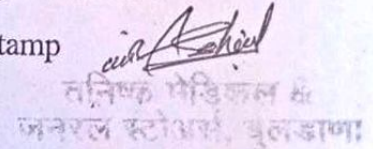 tamp
तनिष्क मेडिकल &
जनरल स्टोअर्स, बुलडाणा